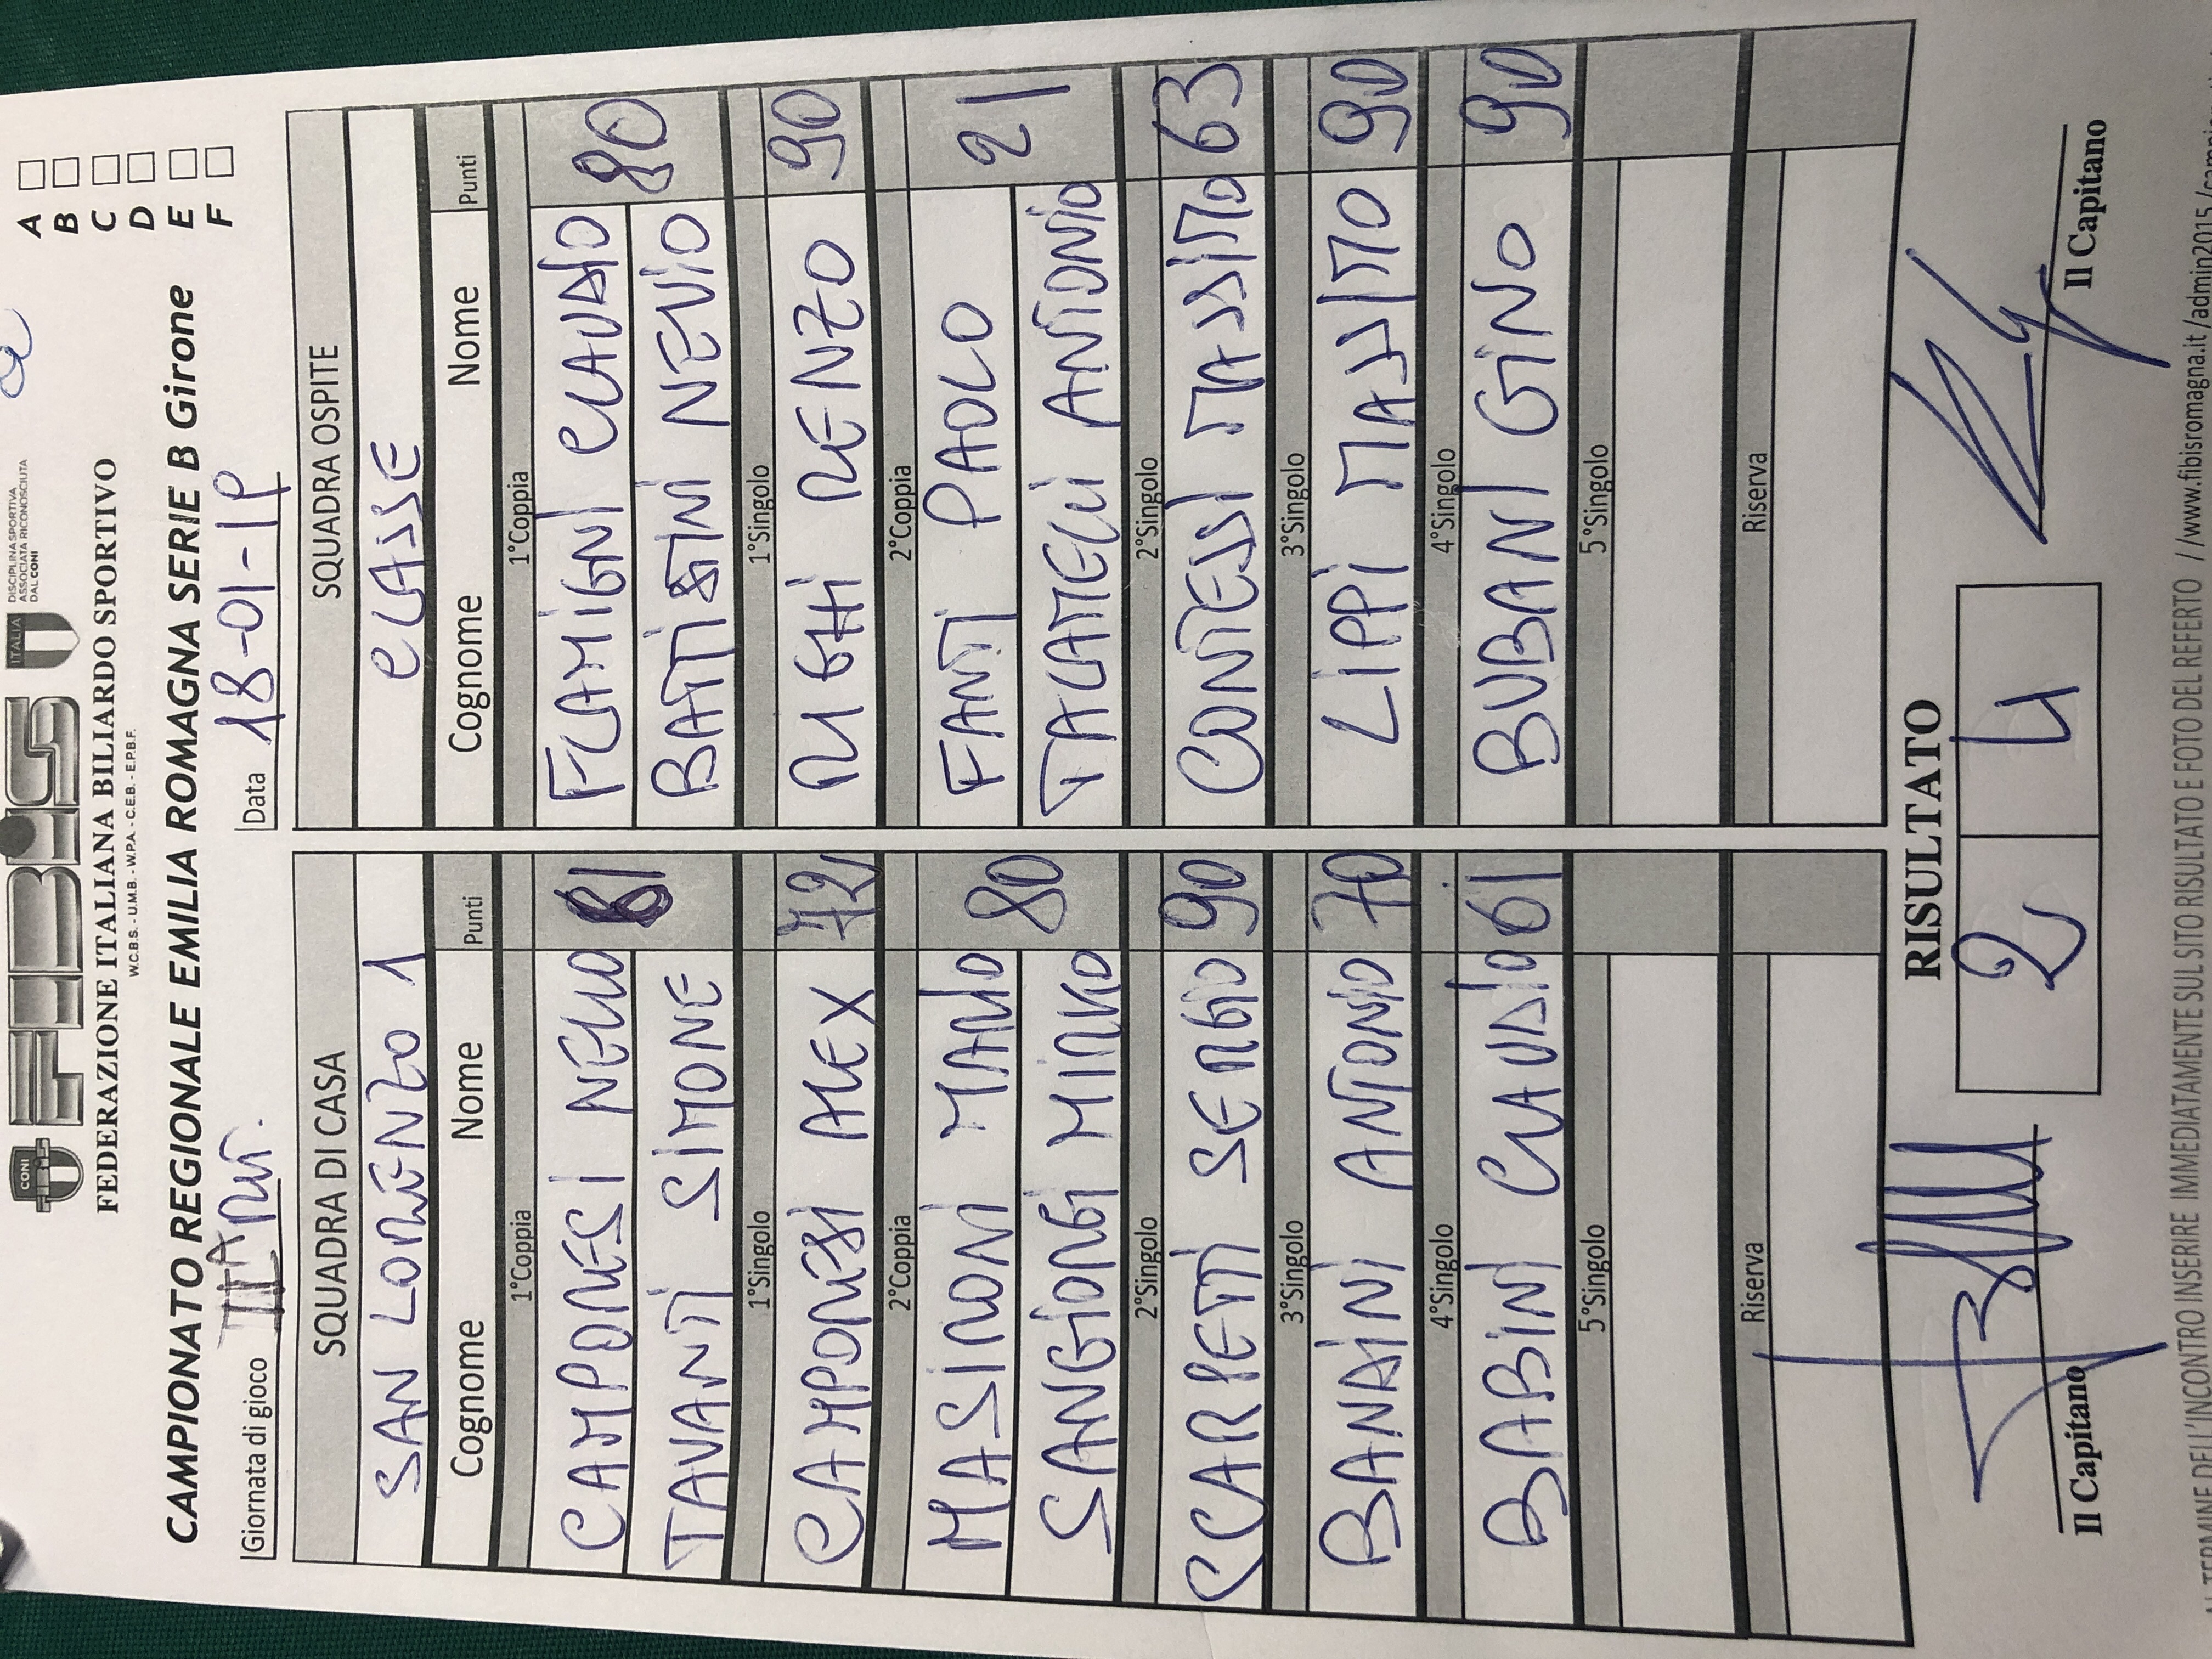 CONI
FIBiS
ITALIA
DISCIPLINA SPORTIVA
ASSOCIATA RICONOSCIUTA
DAL CONI
A
B
C
D
E
F
FEDERAZIONE ITALIANA BILIARDO SPORTIVO
W.C.B.S. - U.M.B. - W.P.A. - C.E.B. - E.P.B.F.
CAMPIONATO REGIONALE EMILIA ROMAGNA SERIE B Girone
Giornata di gioco
Data 18-01-19
SQUADRA DI CASA SQUADRA OSPITE
SAN LORENZO 1 CLASSE
Cognome Nome Punti Cognome Nome Punti
1°Coppia 1°Coppia
CAMPORESI NELLO FLAMIGNI CLAUDIO
61 80
TAVANTI SIMONE BATTISTINI NEVIO
1°Singolo 1°Singolo
CAMPORESI ALEX 72 RIGHI RENZO 90
2°Coppia 2°Coppia
MASIRONI MARIO FANTI PAOLO
80 21
SANGIORGI MIRKO TALAMELLI ANTONIO
2°Singolo 2°Singolo
SCARPETTI SERGIO 90 CONTESSI MASSIMO 63
3°Singolo 3°Singolo
BANDINI ANTONIO 70 LIPPI MASSIMO 90
4°Singolo 4°Singolo
BABINI CLAUDIO 61 BUBANI GINO 90
5°Singolo 5°Singolo
Riserva Riserva
RISULTATO
2 4
Il Capitano Il Capitano
AL TERMINE DELL'INCONTRO INSERIRE IMMEDIATAMENTE SUL SITO RISULTATO E FOTO DEL REFERTO //www.fibisromagna.it/admin2015/